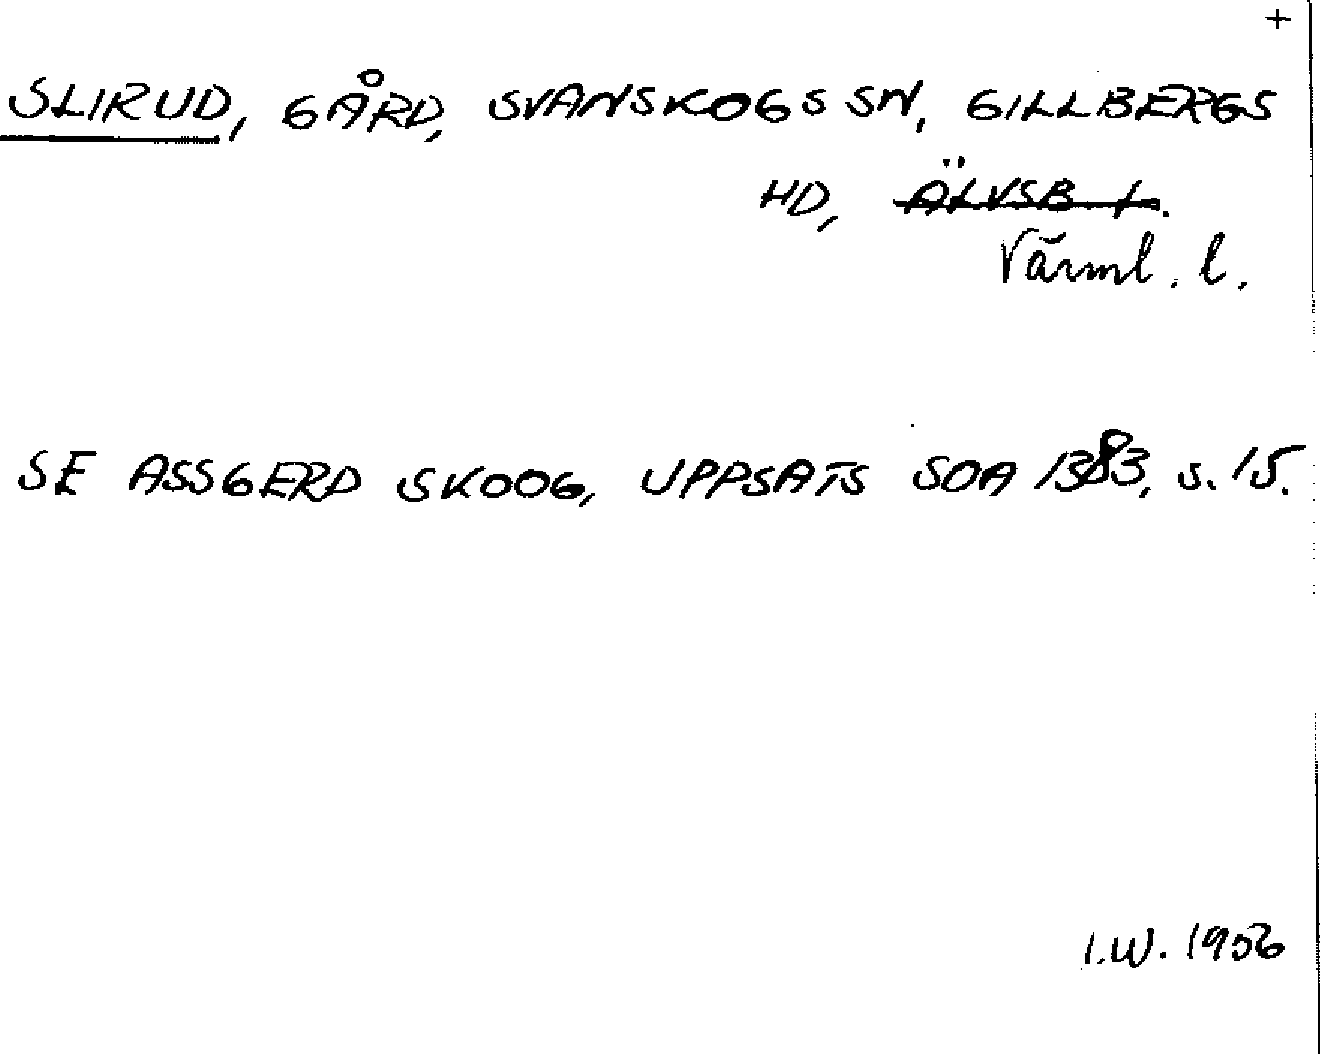 +
SLIRUD, GÅRD, SVANSKOGS SN, GILLBERGS
HD, ÄLVSB L.
Värml. l.
SE ASSGERD SKOOG, UPPSATS SOA 1383, s. 15.
I.W. 1956